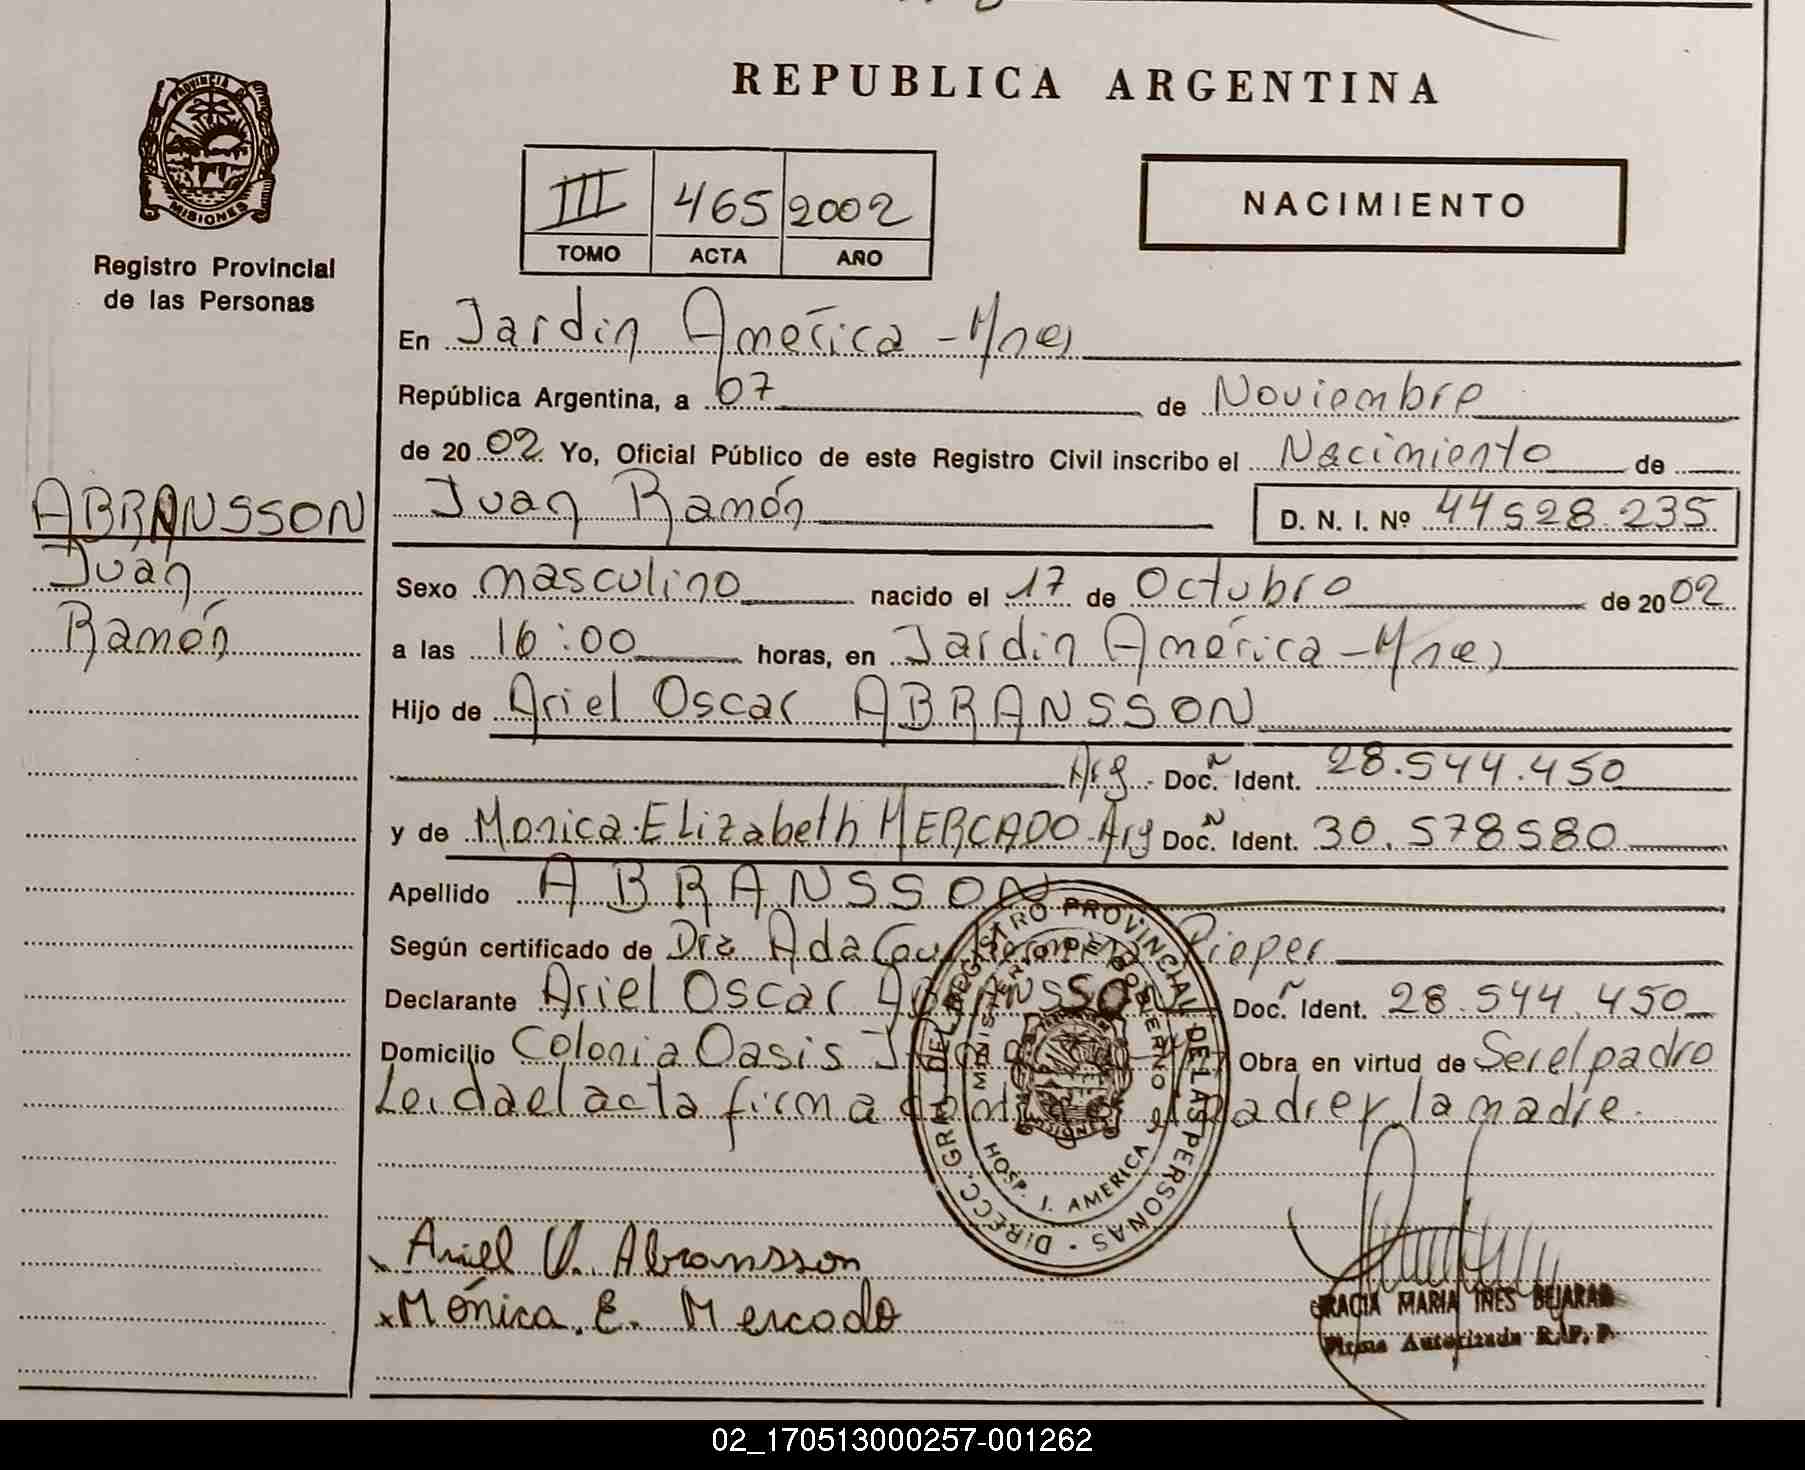 REPUBLICA ARGENTINA
PROVINCIA DE
MISIONES
Registro Provincial
de las Personas
III 465 2002
TOMO ACTA AÑO
NACIMIENTO
En Jardin América - Mnes
República Argentina, a 07 de Noviembre
de 2002 Yo, Oficial Público de este Registro Civil inscribo el Nacimiento de
ABRANSSON
Juan
Ramón
Juan Ramón D. N. I. Nº 44528.235
Sexo masculino nacido el 17 de Octubre de 2002
a las 16:00 horas, en Jardin América - Mnes
Hijo de Ariel Oscar ABRANSSON
Arg. Doc. Ident. 28.544.450
y de Monica Elizabeth MERCADO - Arg Doc. Ident. 30.578580
Apellido ABRANSSON
Según certificado de Dra Ada Pieper
Declarante Ariel Oscar ABRANSSON Doc. Ident. 28.544.450
Domicilio Colonia Oasis Obra en virtud de Ser el padre
Leida el acta firma padre y la madre.
DIRECC. GRAL. DEL REGISTRO PROVINCIAL DE LAS PERSONAS
MINISTERIO DE GOBIERNO
HOSP. J. AMERICA
MISIONES
Ariel O. Abransson
Mónica. E. Mercado
GRACIA MARIA INES BEJARANO
Firma Autorizada R.P.P.
02_170513000257-001262